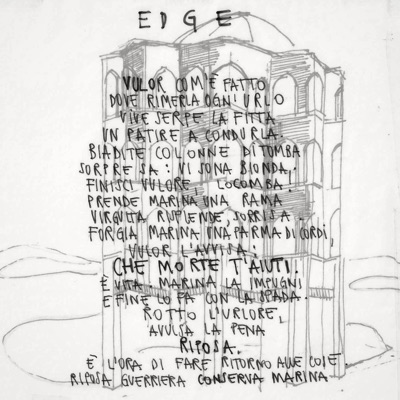 EDGE
VULOR COM'È FATTO
DOVE RIMERLA OGNI URLO
VIVE SERPE LA FITTA
UN PATIRE A CONDURLA.
BIADITE COLONNE DI TOMBA
SORPRESA: VI SONA BIONDA,
FINISCI VULORE, LOCOMBA.
PRENDE MARINA UNA RAMA
VIRGULTA RISPLENDE, SORRISA.
FORGIA MARINA UNA PARMA DI CORDI,
VULOR L'AVVISA:
CHE MORTE T'AIUTI.
È VITA. MARINA LA IMPUGNI
E FINE LO FA CON LA SPADA.
ROTTO L'URLORE,
AVULSA LA PENA
RIPOSA.
È L'ORA DI FARE RITORNO ALLE COIE.
RIPOSA GUERRIERA CONSERVA MARINA